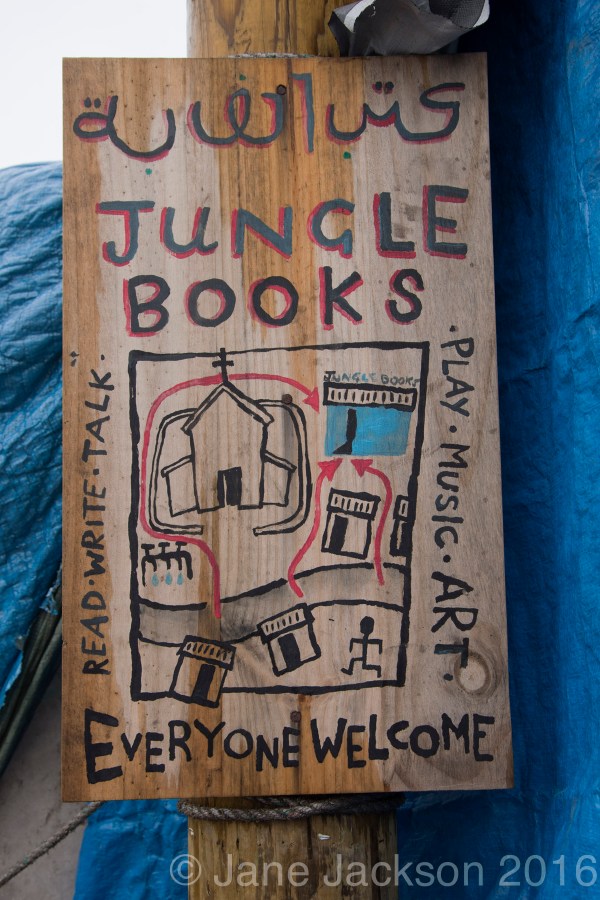 كتب الغابة
JUNGLE
BOOKS
READ·WRITE·TALK·
·PLAY·MUSIC·ART·
JUNGLE BOOKS
EVERYONE WELCOME
© Jane Jackson 2016